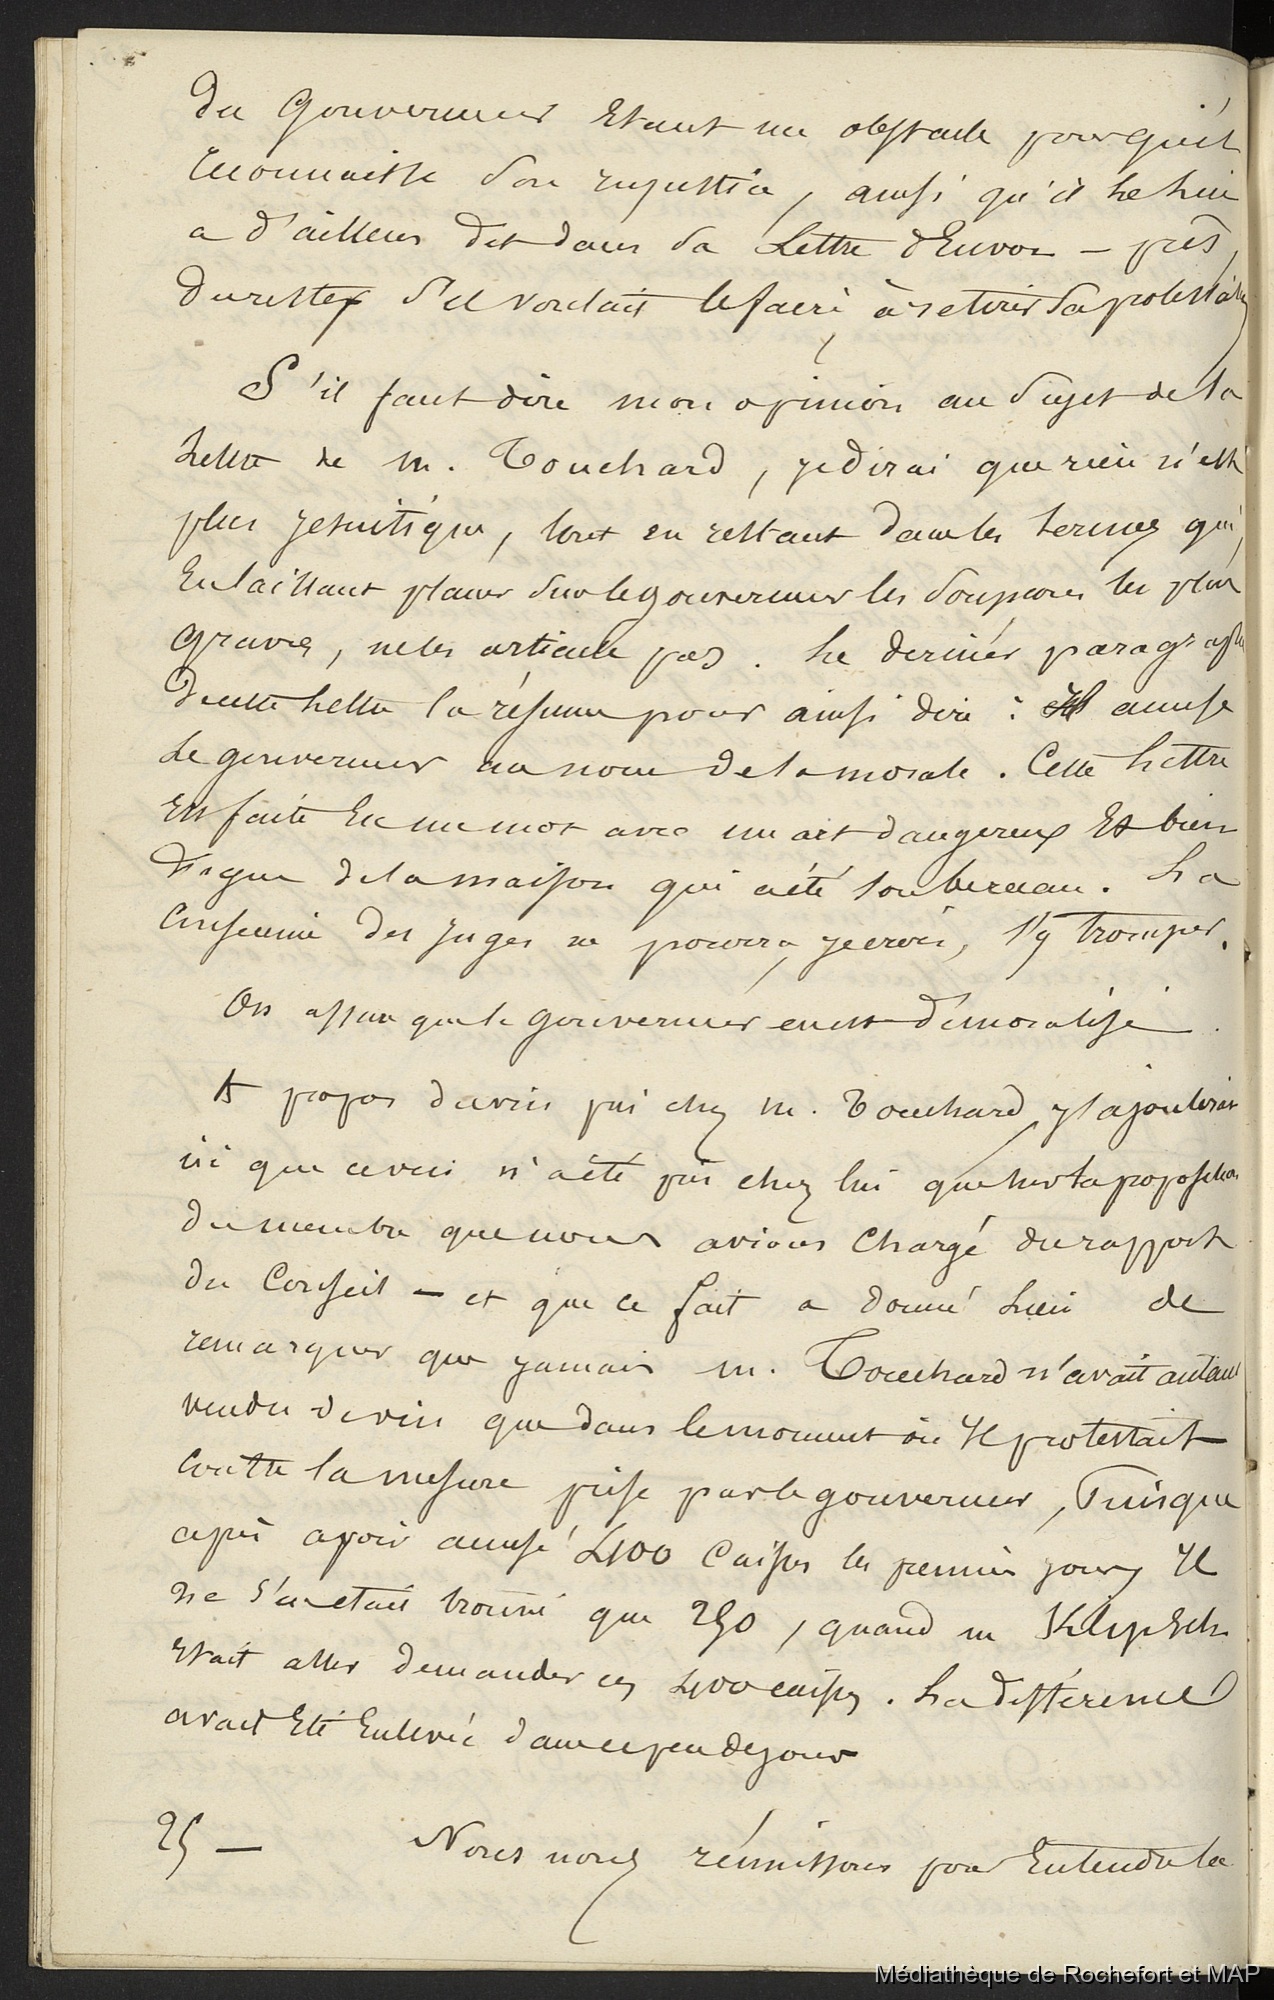 du Gouverneur étant un obstacle pour qu'il
reconnaisse son injustice, ainsi qu'il le lui
a d'ailleurs dit dans sa Lettre d'Envoi — prêt,
du reste, s'il voulait le faire, à retirer sa protestation
S'il faut dire mon opinion au sujet de la
Lettre de M. Touchard, je dirai que rien n'est
plus jesuitique, tout en restant dans les termes qui,
en laissant planer sur le gouverneur les soupçons les plus
graves, ne les articule pas. Le dernier paragraphe
de cette lettre la résume pour ainsi dire : Il accuse
Le gouverneur au nom de la morale. Cette Lettre
est faite en un mot avec un art dangereux et bien
digne de la maison qui a été son berceau. La
Conscience des juges ne pourra, je crois, s'y tromper.
On assure que le gouverneur en est démoralisé.
A propos du vin pris chez M. Touchard, j'ajouterai
ici que ce vin n'a été pris chez lui que sur la proposition
du membre que nous avions chargé du rapport
du Conseil — et que ce fait a donné lieu de
remarquer que jamais M. Touchard n'avait autant
vendu de vin que dans le moment où il protestait
contre la mesure prise par le gouverneur, Puisque
après avoir accusé 400 Caisses les premiers jours, il
ne s'en était trouvé que 250, quand M
était aller demander ces 400 caisses. La différence
avait été enlevée dans ce peu de jours
25 — Nous nous réunissons pour Entendre la
Médiathèque de Rochefort et MAP